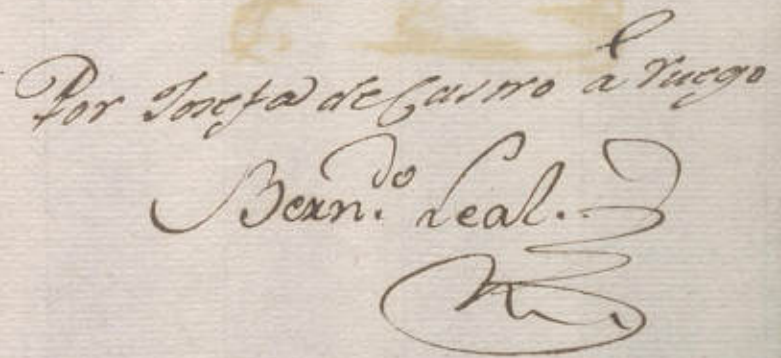 Por Josefa de Castro á ruego
Bern.do Leal.